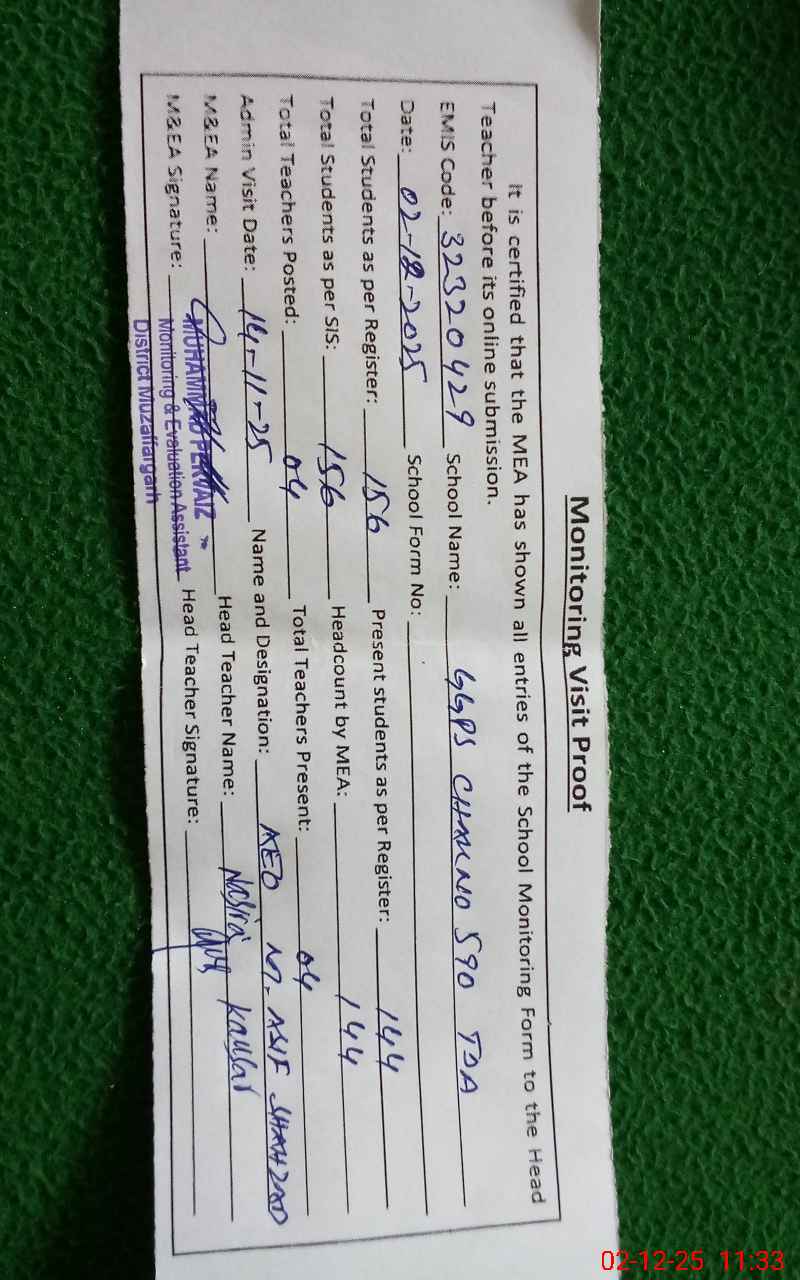 Monitoring Visit Proof
It is certified that the MEA has shown all entries of the School Monitoring Form to the Head
Teacher before its online submission.
EMIS Code: 32320429 School Name: GGPS CHAK NO 590 TDA
Date: 02-12-2025 School Form No:
Total Students as per Register: 156 Present students as per Register: 144
Total Students as per SIS: 156 Headcount by MEA: 144
Total Teachers Posted: 04 Total Teachers Present: 04
Admin Visit Date: 14-11-25 Name and Designation: AEO M. ASIF SHAHZAD
M&EA Name: MUHAMMAD PERVAIZ Head Teacher Name: Nasira Kausar
M&EA Signature: Monitoring & Evaluation Assistant Head Teacher Signature:
District Muzaffargarh
02-12-25 11:33